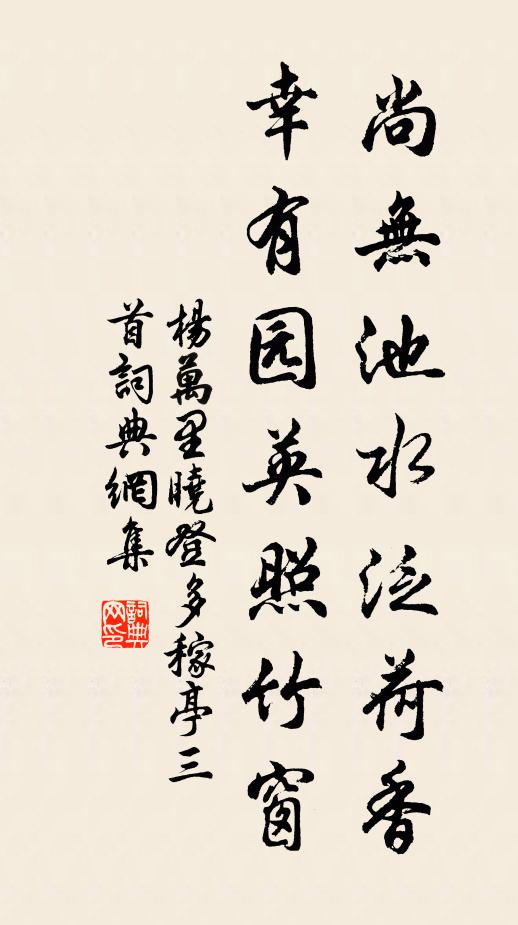 尚無池水泛荷香
幸有园英照竹窗
楊萬里曉登多稼亭三
首詞典網集
詞典
网印